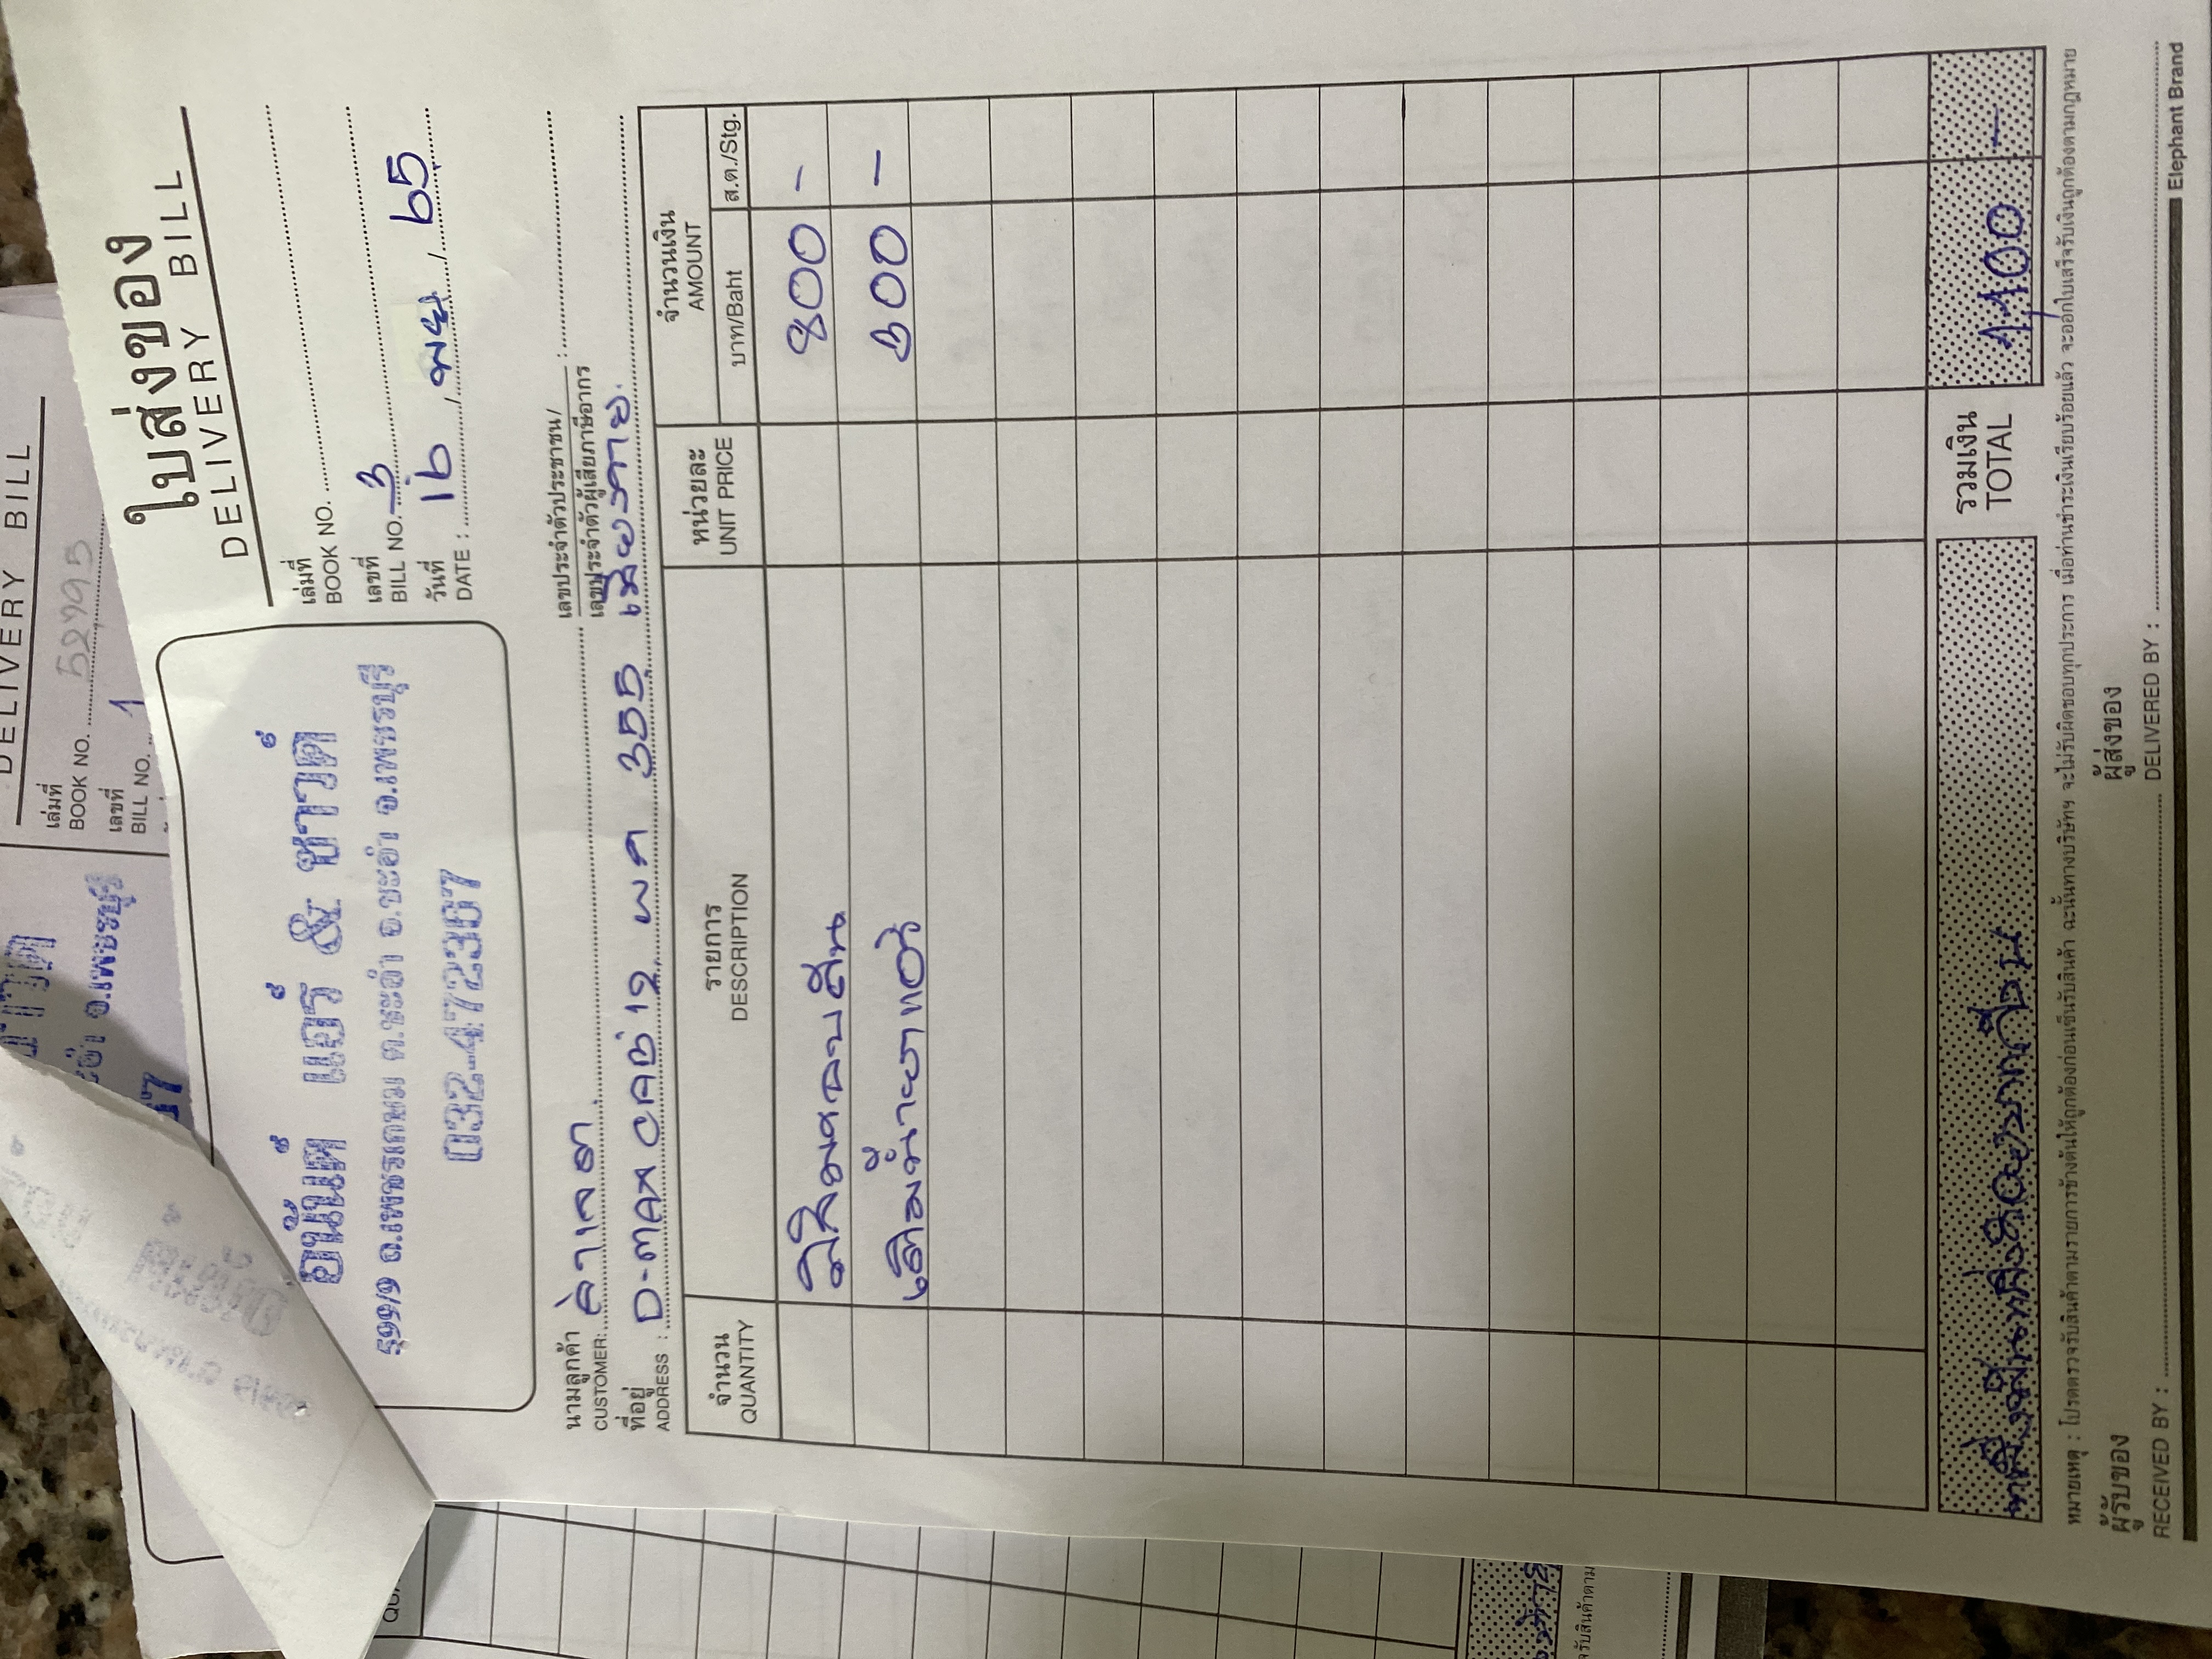 ใบส่งของ
DELIVERY BILL
อนันต์ แอร์ & ซาวด์
ถ.เพชรเกษม ต.ชะอำ อ.ชะอำ จ.เพชรบุรี
032-472307
เล่มที่
BOOK NO.
เลขที่
BILL NO. 3
วันที่
DATE : 16 / / 65
นามลูกค้า
CUSTOMER:
เลขประจำตัวประชาชน/
เลขประจำตัวผู้เสียภาษีอากร :
ที่อยู่
ADDRESS : D-MAX 355 เชียงราย.
จำนวน รายการ หน่วยละ จำนวนเงิน
QUANTITY DESCRIPTION UNIT PRICE AMOUNT
บาท/Baht ส.ต./Stg.
800 -
เติมน้ำยาแอร์ 300 -
หนึ่งพันหนึ่งร้อยบาทถ้วน รวมเงิน TOTAL 1,100 -
หมายเหตุ : โปรดตรวจรับสินค้าตามรายการข้างต้นให้ถูกต้องก่อนเซ็นรับสินค้า ฉะนั้นทางบริษัทฯ จะไม่รับผิดชอบทุกประการ เมื่อท่านชำระเงินเรียบร้อยแล้ว จะออกใบเสร็จรับเงินถูกต้องตามกฎหมาย
ผู้รับของ
RECEIVED BY :
ผู้ส่งของ
DELIVERED BY :
Elephant Brand
DELIVERY BILL
เล่มที่
BOOK NO. 52995
เลขที่
BILL NO. 1
อ.เพชรบุรี